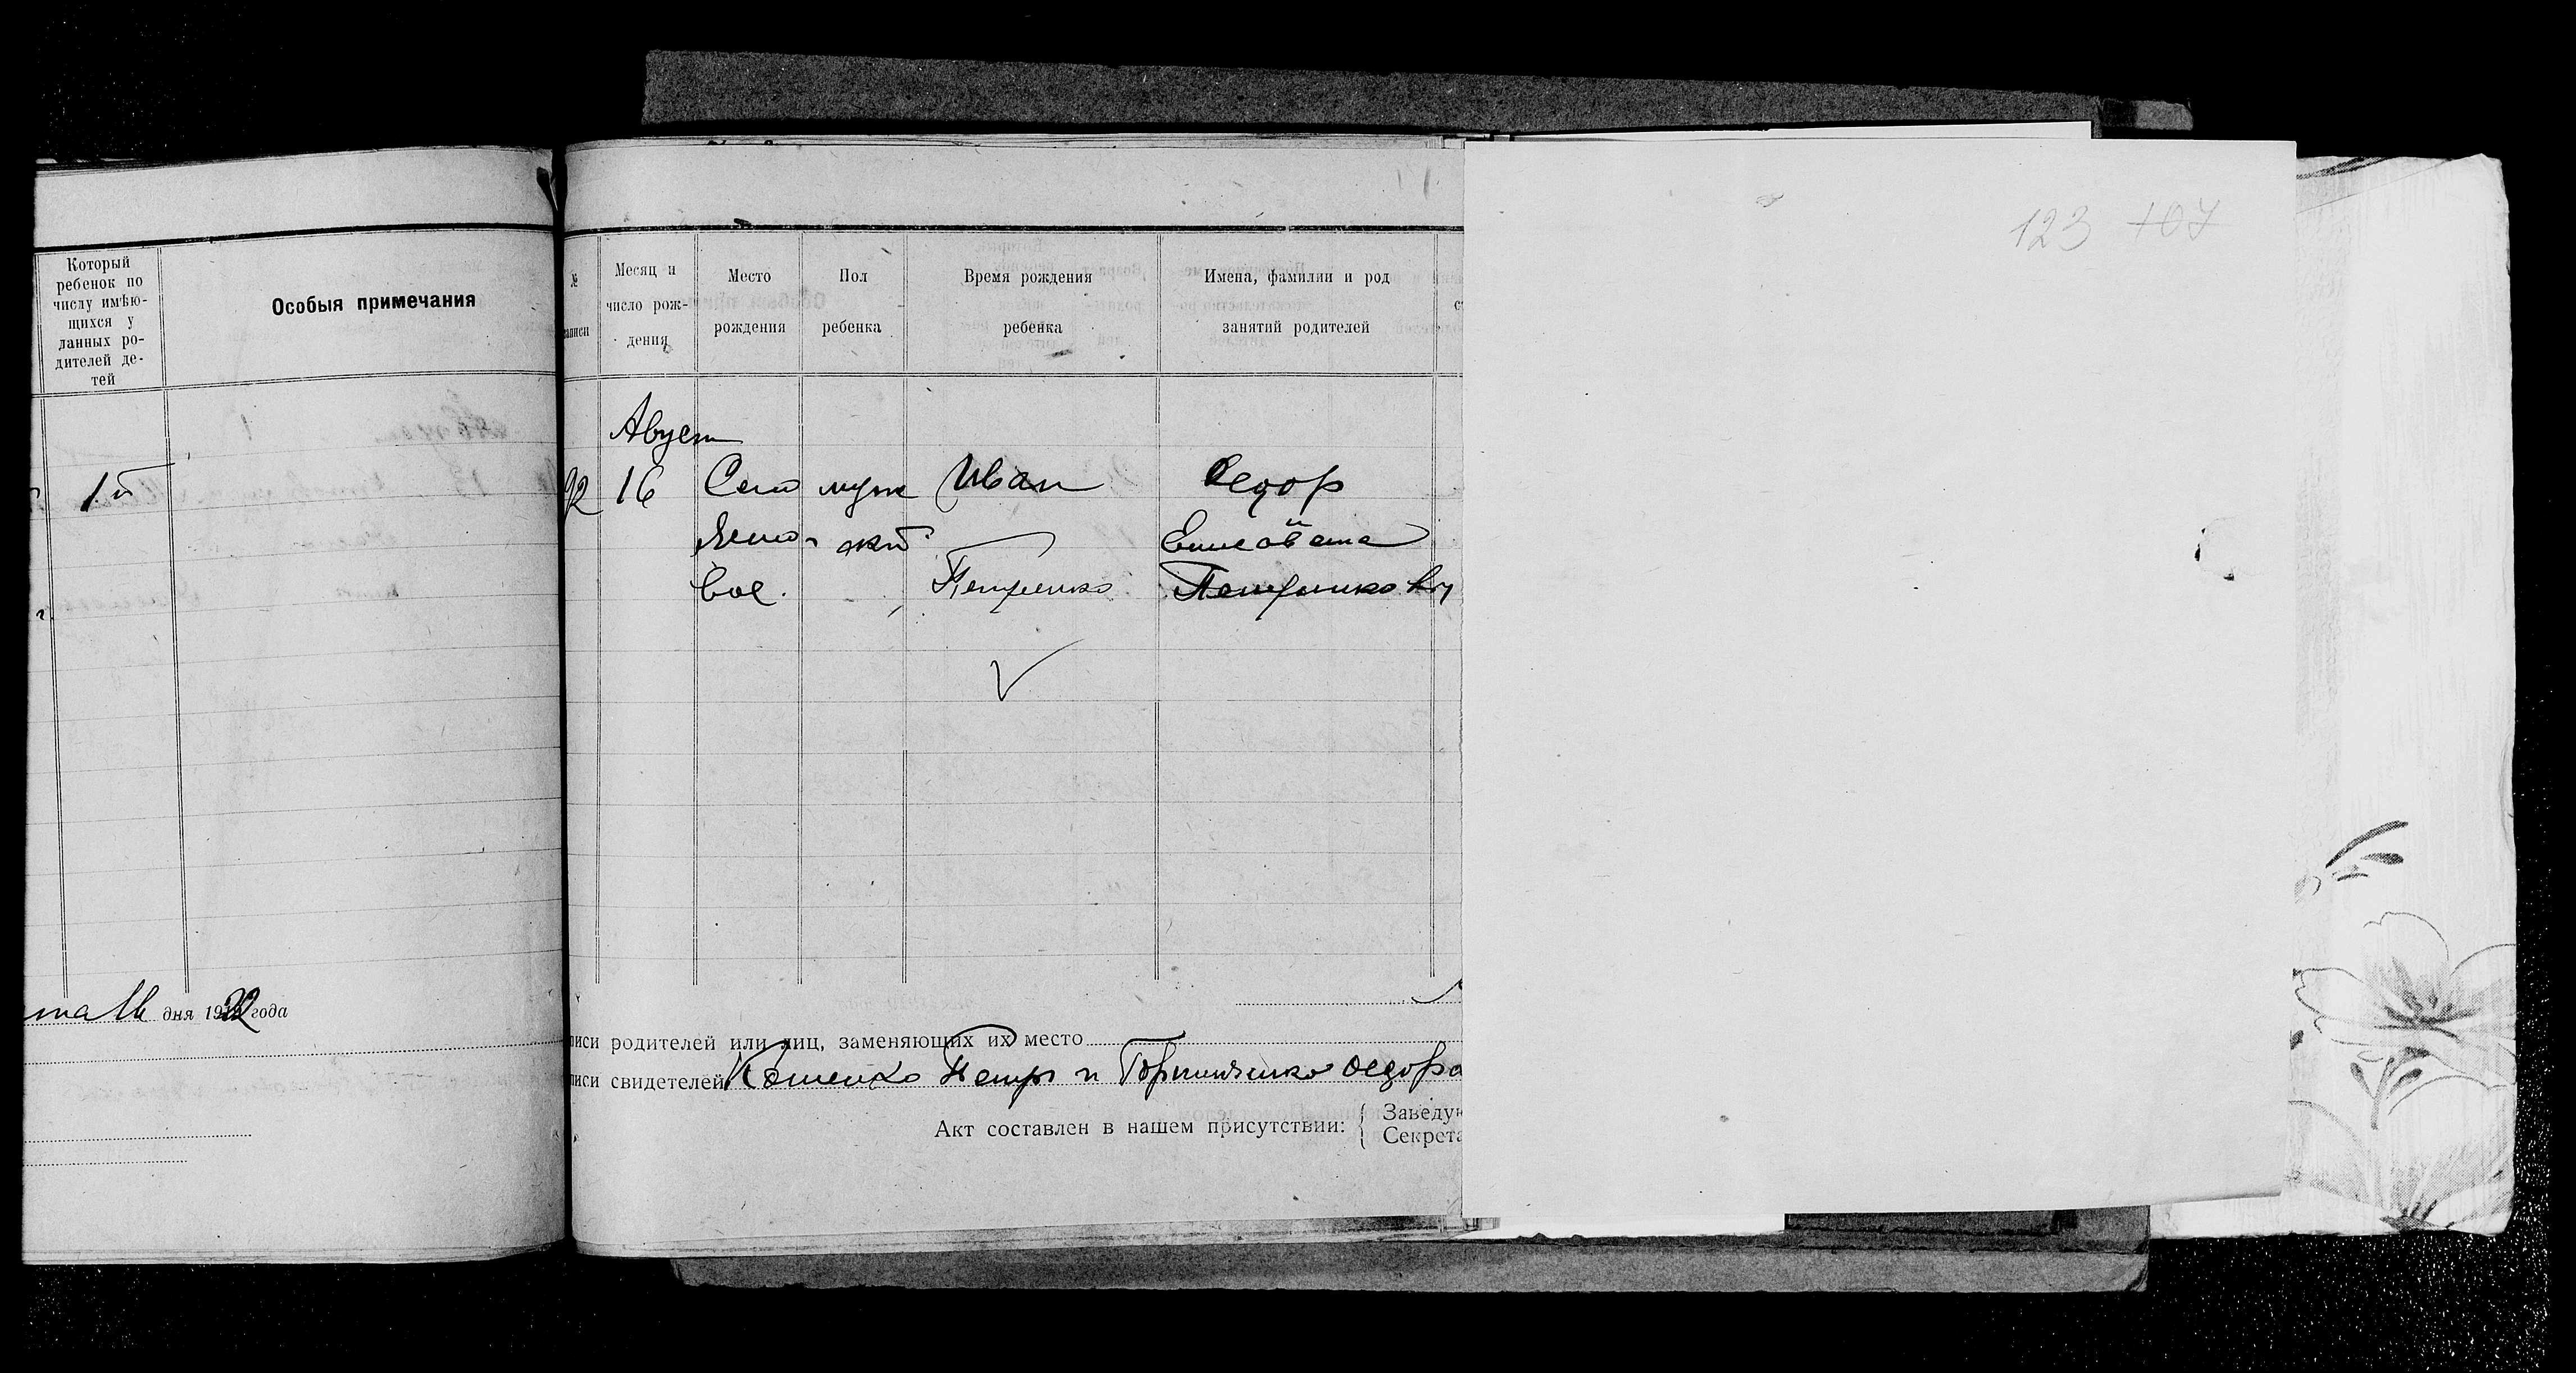 Который
ребенок по
числу имѣю-
щихся у
данных ро-
дителей де-
тей
Особыя примечания
1й
дня 1922 года
№
записи
Месяц и
число рож-
дения
Место
рождения
Пол
ребенка
Время рождения
ребенка
Имена, фамилии и род
занятий родителей
Август
92 16 Село муж Иван Федор
ской Елисавета
вое. Петренко Петренковы
123 107
писи родителей или лиц, заменяющих их место
писи свидетелей Петр и Федора
Акт составлен в нашем присутствии:
Заведую
Секрета